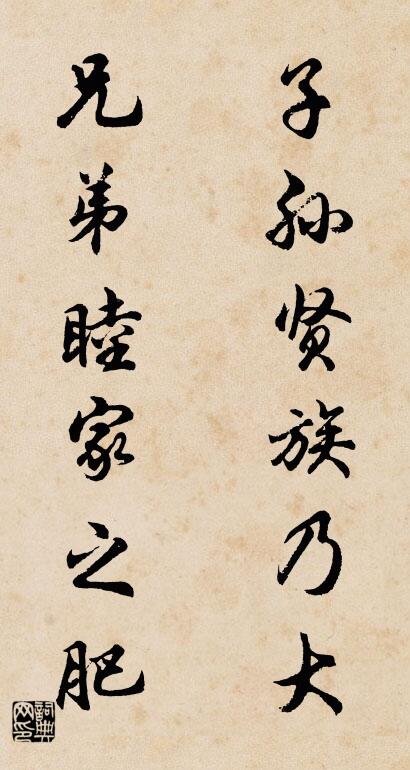 子孙贤族乃大
兄弟睦家之肥
詞典网